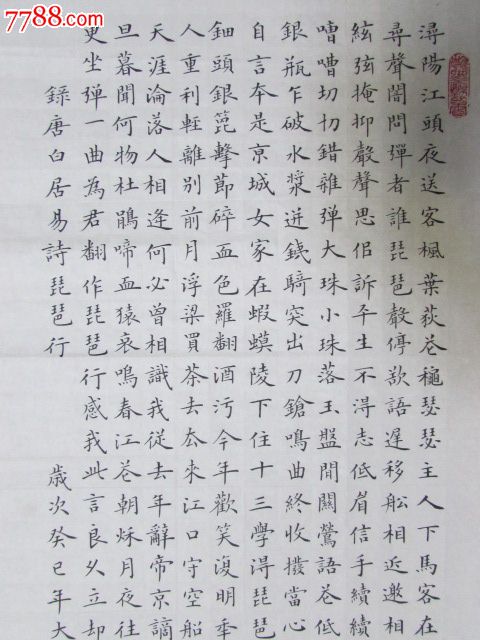 7788.com
潯陽江頭夜送客楓葉荻花穐瑟瑟主人下馬客在
尋聲闇問彈者誰琵琶聲停欲語遲移舩相近邀相
絃弦掩抑聲聲思侶訴平生不得志低眉信手續續
嘈嘈切切錯雜彈大珠小珠落玉盤間關鶯語花低
銀瓶乍破水漿迸鐵騎突出刀鎗鳴曲終收撥當心
自言本是京城女家在蝦蟆陵下住十三學得琵琶
鈿頭銀篦擊節碎血色羅翻酒污今年歡笑復明年
人重利輕離別前月浮梁買茶去去來江口守空船
天涯淪落人相逢何必曾相識我從去年辭帝京謫
旦暮聞何物杜鵑啼血猿哀鳴春江花朝秋月夜往
更坐弹一曲為君翻作琵琶行感我此言良久立却
錄唐白居易詩琵琶行 歲次癸巳年大